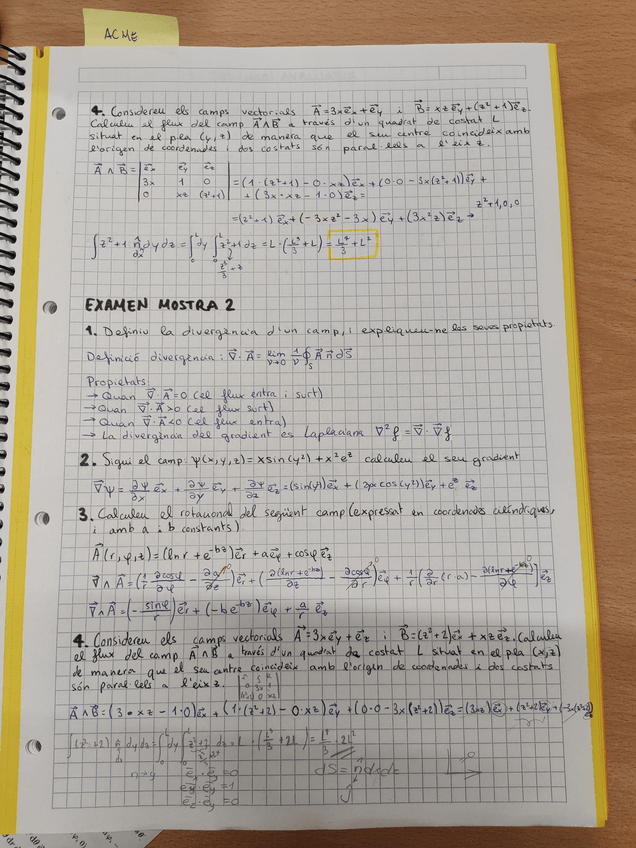 ACME
4. Considereu els camps vectorials A⃗=3xe⃗x+e⃗y i B⃗=xze⃗y+(z²+1)e⃗z.
Calculeu el flux del camp A⃗∧B⃗ a través d'un quadrat de costat L
situat en el pla (y,z) de manera que el seu centre coincideix amb
l'origen de coordenades i dos costats són paral·lels a l'eix z.
A⃗∧B⃗ = | e⃗x e⃗y e⃗z |
| 3x 1 0 | =(1·(z²+1)-0·xz)e⃗x+(0·0-3x(z²+1))e⃗y+
| 0 xz (z²+1) | +(3x·xz-1·0)e⃗z=
=(z²+1)e⃗x+(-3xz²-3x)e⃗y+(3x²z)e⃗z → z²+1,0,0
EXAMEN MOSTRA 2
1. Definiu la divergència d'un camp, i expliqueu-ne les seves propietats
Definició divergència: ∇⃗·A⃗=lim v→0 1/v ∮s A⃗ n⃗ dS
Propietats:
→ Quan ∇⃗·A⃗=0 (el flux entra i surt)
→ Quan ∇⃗·A⃗>0 (el flux surt)
→ Quan ∇⃗·A⃗<0 (el flux entra)
→ La divergència del gradient és Laplaciana ∇²f = ∇⃗·∇⃗f
2. Sigui el camp: ψ(x,y,z)=xsin(y²)+x²e^z calculeu el seu gradient
3. Calculeu el rotacional del següent camp (expressat en coordenades cilíndriques,
i amb a i b constants)
A⃗(r,φ,z)=(lnr+e^-bz)e⃗r+ae⃗φ+cosφe⃗z
∇⃗∧A⃗=(-sinφ/r)e⃗r+(-be^-bz)e⃗φ+a/r e⃗z
4. Considereu els camps vectorials A⃗=3xe⃗y+e⃗z i B⃗=(z²+2)e⃗x+xze⃗z. Calculeu
el flux del camp A⃗∧B⃗ a través d'un quadrat de costat L situat en el pla (x,z)
de manera que el seu centre coincideix amb l'origen de coordenades i dos costats
són paral·lels a l'eix z.
A⃗∧B⃗=(3·xz-1·0)e⃗x+(1·(z²+2)-0·xz)e⃗y+(0·0-3x(z²+2))e⃗z=(3xz)e⃗x+(z²+2)e⃗y+(-3x(z²+2))e⃗z
e⃗x·e⃗y=0
e⃗y·e⃗y=1
e⃗z·e⃗y=0